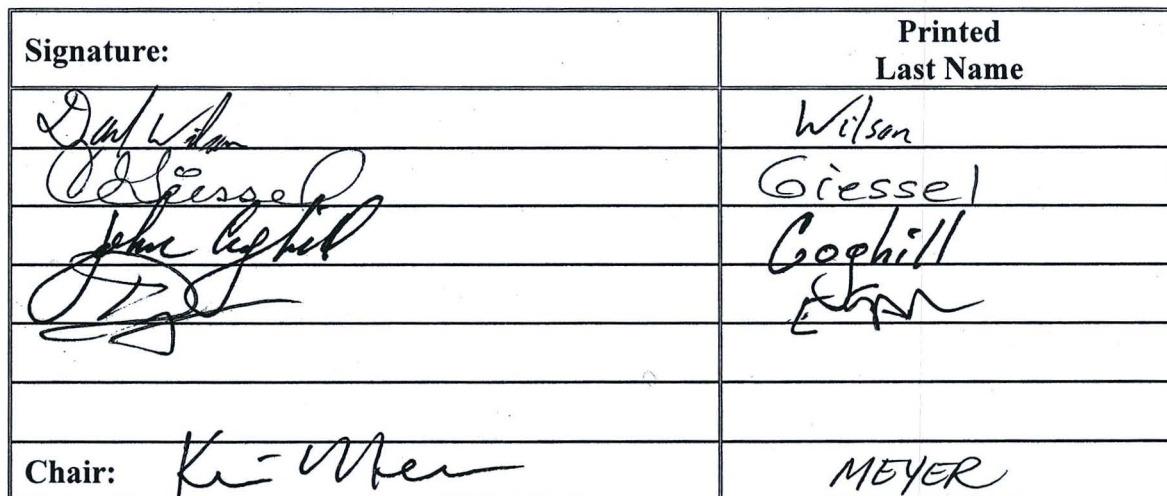 Signature:
Printed
Last Name
Wilson
Wilson
Giessel
Giessel
John Coghill
Coghill
Chair:
MEYER